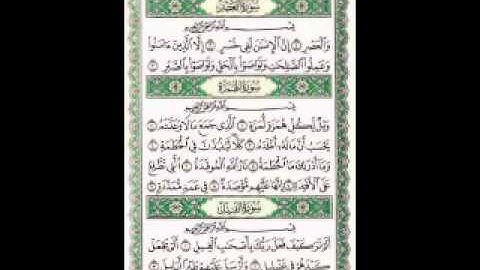 سُورَةُ العَصْرِ
بِسْمِ اللَّهِ الرَّحْمَٰنِ الرَّحِيمِ
وَالْعَصْرِ ۝١ إِنَّ الْإِنسَٰنَ لَفِى خُسْرٍ ۝٢ إِلَّا الَّذِينَ ءَامَنُوا
وَعَمِلُوا الصَّٰلِحَٰتِ وَتَوَاصَوْا بِالْحَقِّ وَتَوَاصَوْا بِالصَّبْرِ ۝٣
سُورَةُ الهُمَزَةِ
بِسْمِ اللَّهِ الرَّحْمَٰنِ الرَّحِيمِ
وَيْلٌ لِّكُلِّ هُمَزَةٍ لُّمَزَةٍ ۝١ الَّذِى جَمَعَ مَالًا وَعَدَّدَهُ ۝٢
يَحْسَبُ أَنَّ مَالَهُ أَخْلَدَهُ ۝٣ كَلَّا لَيُنبَذَنَّ فِى الْحُطَمَةِ ۝٤
وَمَا أَدْرَىٰكَ مَا الْحُطَمَةُ ۝٥ نَارُ اللَّهِ الْمُوقَدَةُ ۝٦ الَّتِى تَطَّلِعُ
عَلَى الْأَفْـِٔدَةِ ۝٧ إِنَّهَا عَلَيْهِم مُّؤْصَدَةٌ ۝٨ فِى عَمَدٍ مُّمَدَّدَةٍ ۝٩
سُورَةُ الفِيلِ
بِسْمِ اللَّهِ الرَّحْمَٰنِ الرَّحِيمِ
أَلَمْ تَرَ كَيْفَ فَعَلَ رَبُّكَ بِأَصْحَٰبِ الْفِيلِ ۝١ أَلَمْ يَجْعَلْ
كَيْدَهُمْ فِى تَضْلِيلٍ ۝٢ وَأَرْسَلَ عَلَيْهِمْ طَيْرًا أَبَابِيلَ ۝٣